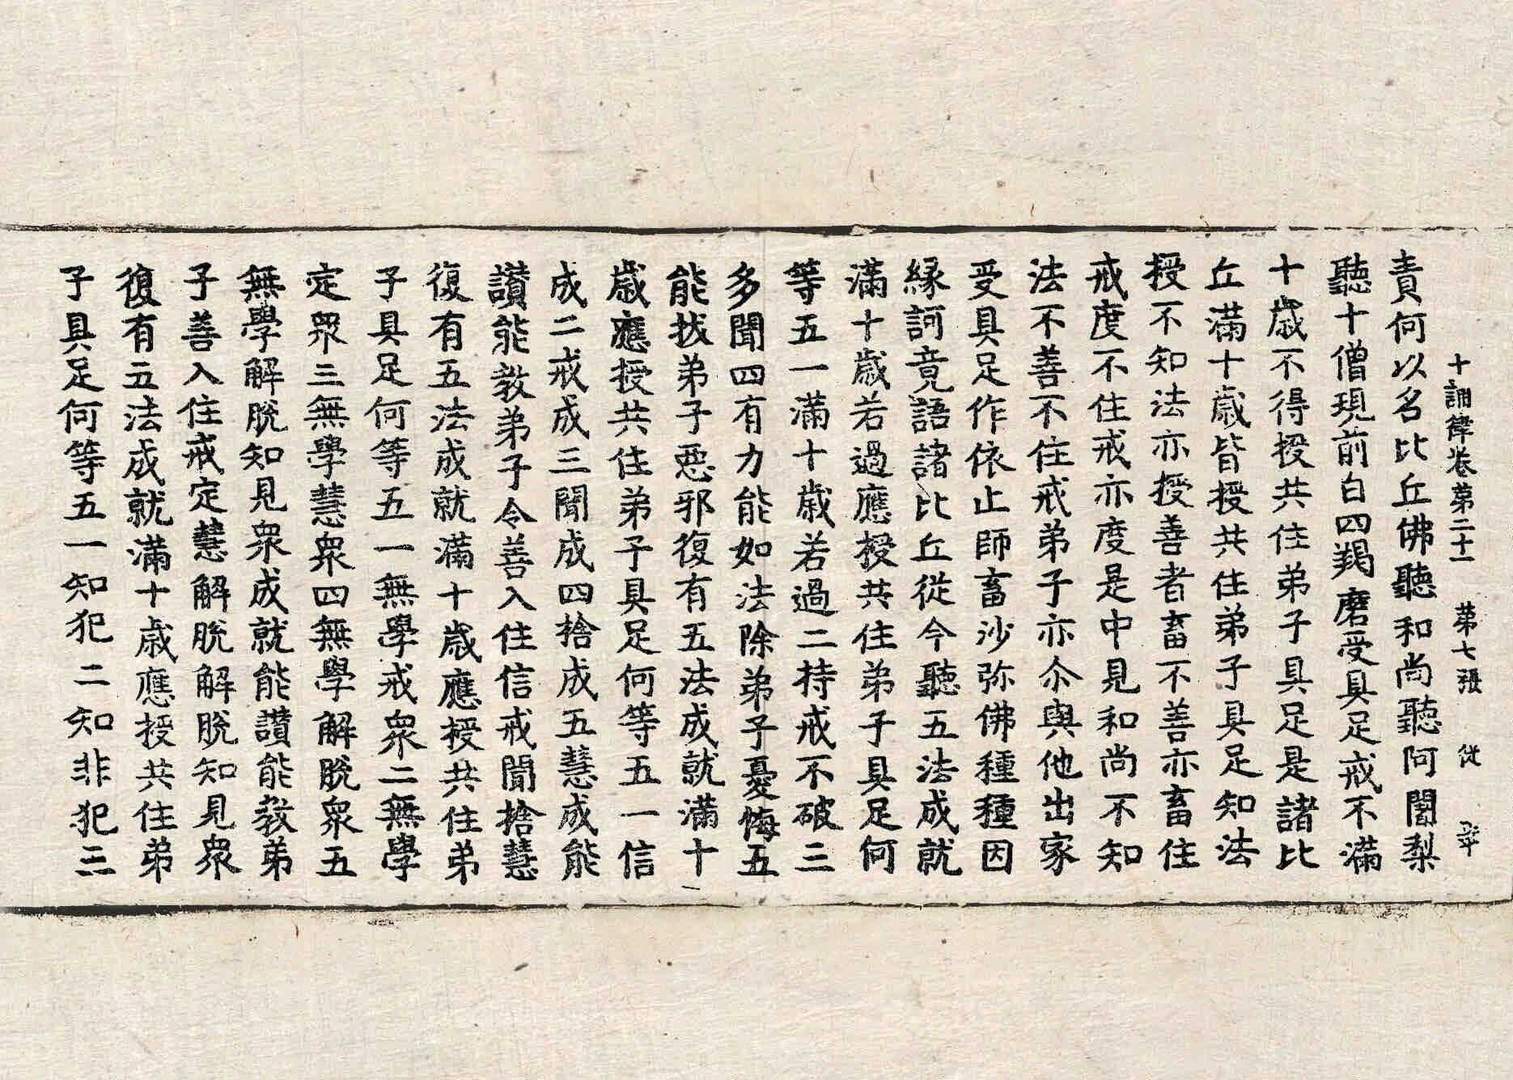 十誦律卷第二十一　第七張　從
責何以名比丘佛聽和尚聽阿闍梨
聽十僧現前白四羯磨受具足戒不滿
十歲不得授共住弟子具足是諸比
丘滿十歲皆授共住弟子具足知法
授不知法亦授善者畜不善亦畜住
戒度不住戒亦度是中見和尚不知
法不善不住戒弟子亦尒與他出家
受具足作依止師畜沙弥佛種種因
緣訶竟語諸比丘從今聽五法成就
滿十歲若過應授共住弟子具足何
等五一滿十歲若過二持戒不破三
多聞四有力能如法除弟子憂悔五
能拔弟子惡邪復有五法成就滿十
歲應授共住弟子具足何等五一信
成二戒成三聞成四捨成五慧成能
讃能教弟子令善入住信戒聞捨慧
復有五法成就滿十歲應授共住弟
子具足何等五一無學戒衆二無學
定衆三無學慧衆四無學解脫衆五
無學解脫知見衆成就能讃能教弟
子善入住戒定慧解脫解脫知見衆
復有五法成就滿十歲應授共住弟
子具足何等五一知犯二知非犯三